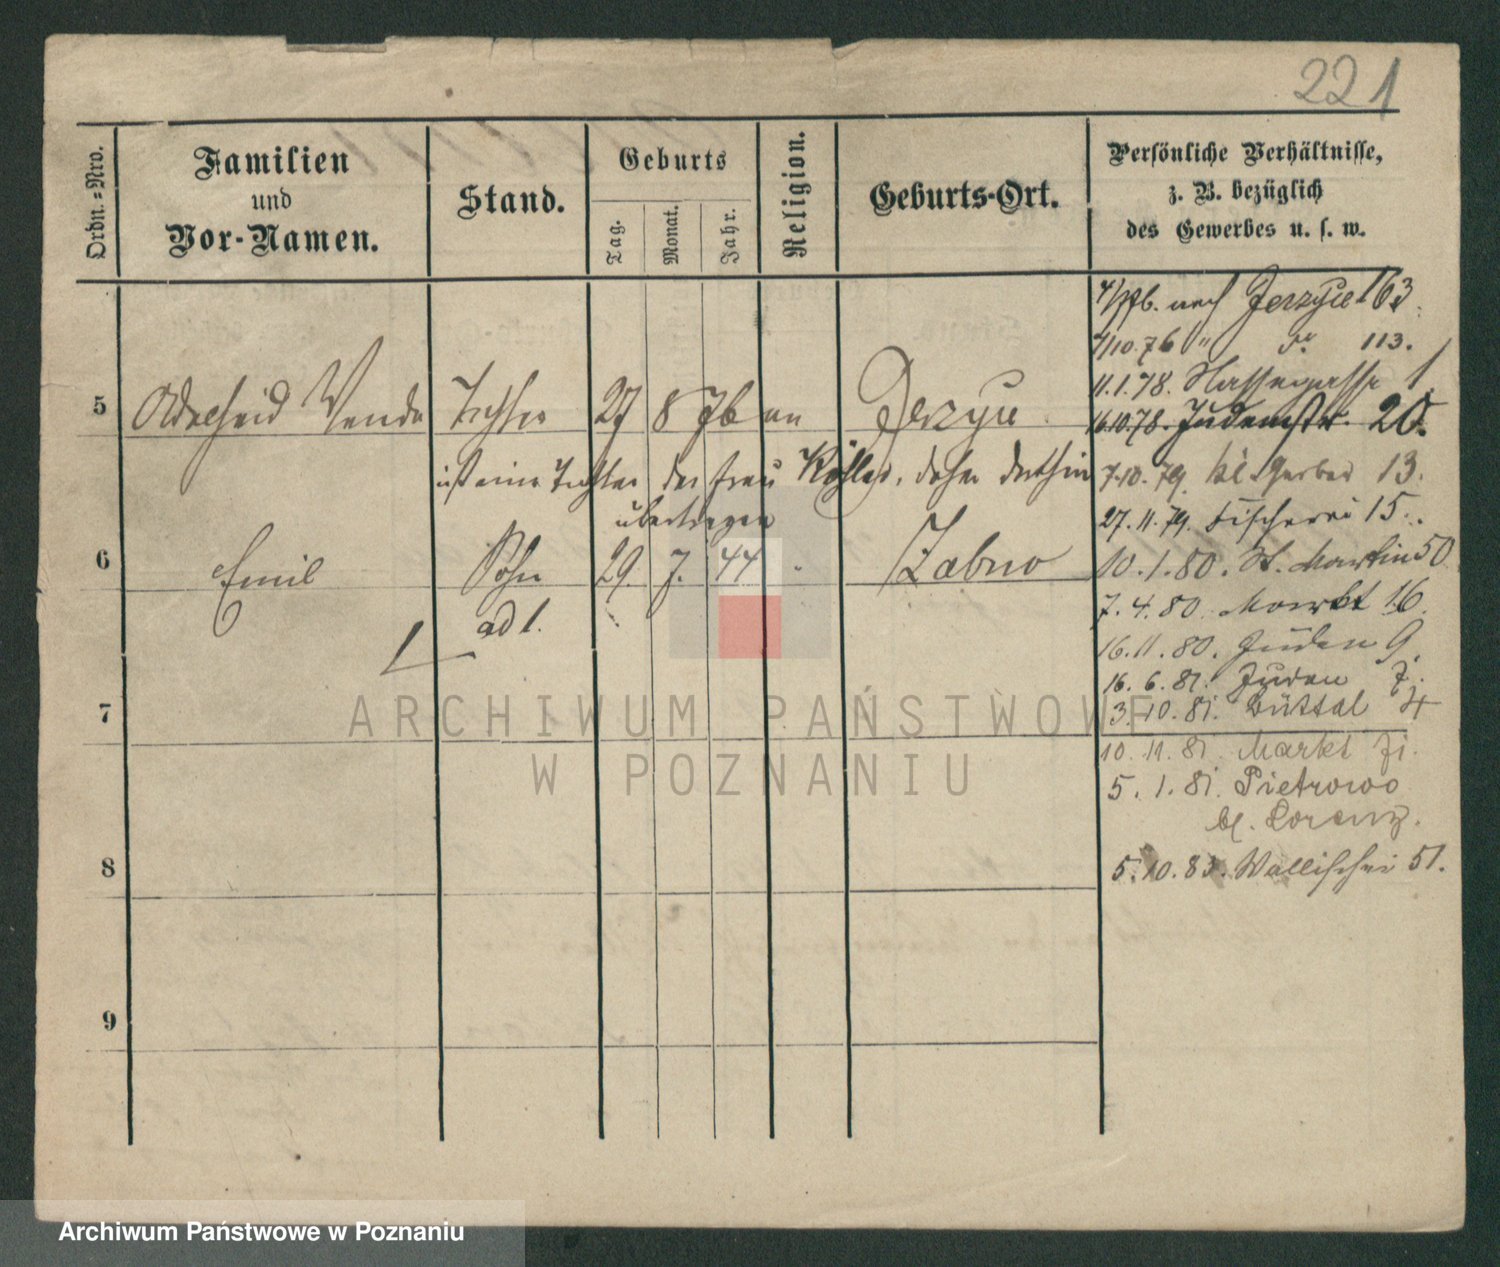 221
Ordn.-Nro.
Familien
und
Vor-Namen.
Stand.
Geburts
Tag.
Monat.
Jahr.
Religion.
Geburts-Ort.
Persönliche Verhältnisse,
z. B. bezüglich
des Gewerbes u. s. w.
nach Jerzyce 163
4/10.76 " do 113.
11.1.78. Nassegasse 1
16.10.78. Judenstr. 20.
5 Adelheid Wenda Tochter 27 8 76 Jerzyce
ist eine Tochter der Frau daher dorthin
übertragen
7.10.79. kl. Gerber 13.
27.11.79. Fischerei 15.
6 Emil Sohn 29 7. 44 " Zabno
ad 1.
10.1.80. St. Martin 50
7.4.80. Markt 16.
16.11.80. Juden 9.
16.6.81. Juden 7.
3.10.81. Büttel 4
7
10.11.81. Markt 71.
5.1.81. Pietrowo
bl. Lorenz.
8
5.10.83. Wallischei 51.
9
ARCHIWUM PAŃSTWOWE
W POZNANIU
Archiwum Państwowe w Poznaniu